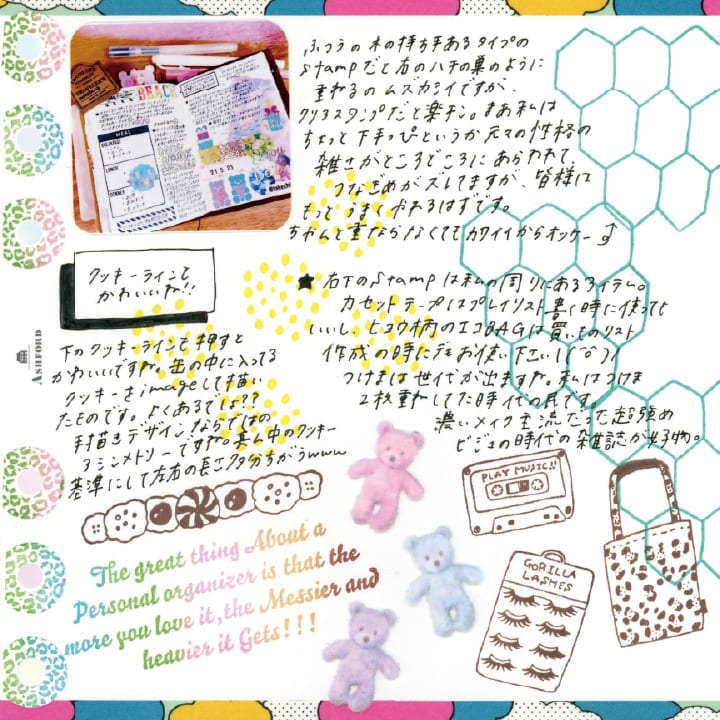 ふつうの木の持ち手あるタイプの
stampだと右のハチの巣のように
重ねるのムズカシイですが、
クリアスタンプだと楽チン。まあ私は
ちょっと下手っぴというか元々の性格の
雑さがところどころにあらわれて、
つなぎめがズレてますが、皆様は
もっとうまくやれるはずです。
ちゃんと重ならなくてもカワイイからオッケー
BEACH
MEAL
BREAKFAST
LUNCH
DINNER
21 5 23
クッキーラインとか
かわいいね!!
★右下のstampは私の周りにあるアイテム。
カセットテープはプレイリスト書く時に使っても
いいし、ヒョウ柄のエコBAGは買いものリスト
作成の時にでもお使い下さい
つけまは世代が出ますね。私はつけま
2枚重ねしてた時代の民です。
濃いメイク主流だった超強め
ビジュの時代の雑誌が好物。
ASHFORD
下のクッキーラインで押すと
かわいいですね。缶の中に入ってる
クッキーをimageして描い
たものです。よくあるでしょ??
手描きデザインならではの
アシンメトリーですね。真ん中のクッキー
基準にして左右の長さ多分ちがうwww
PLAY MUSIC!!
GORILLA
LASHES
The great thing About a
Personal organizer is that the
more you love it,the Messier and
heavier it Gets!!!